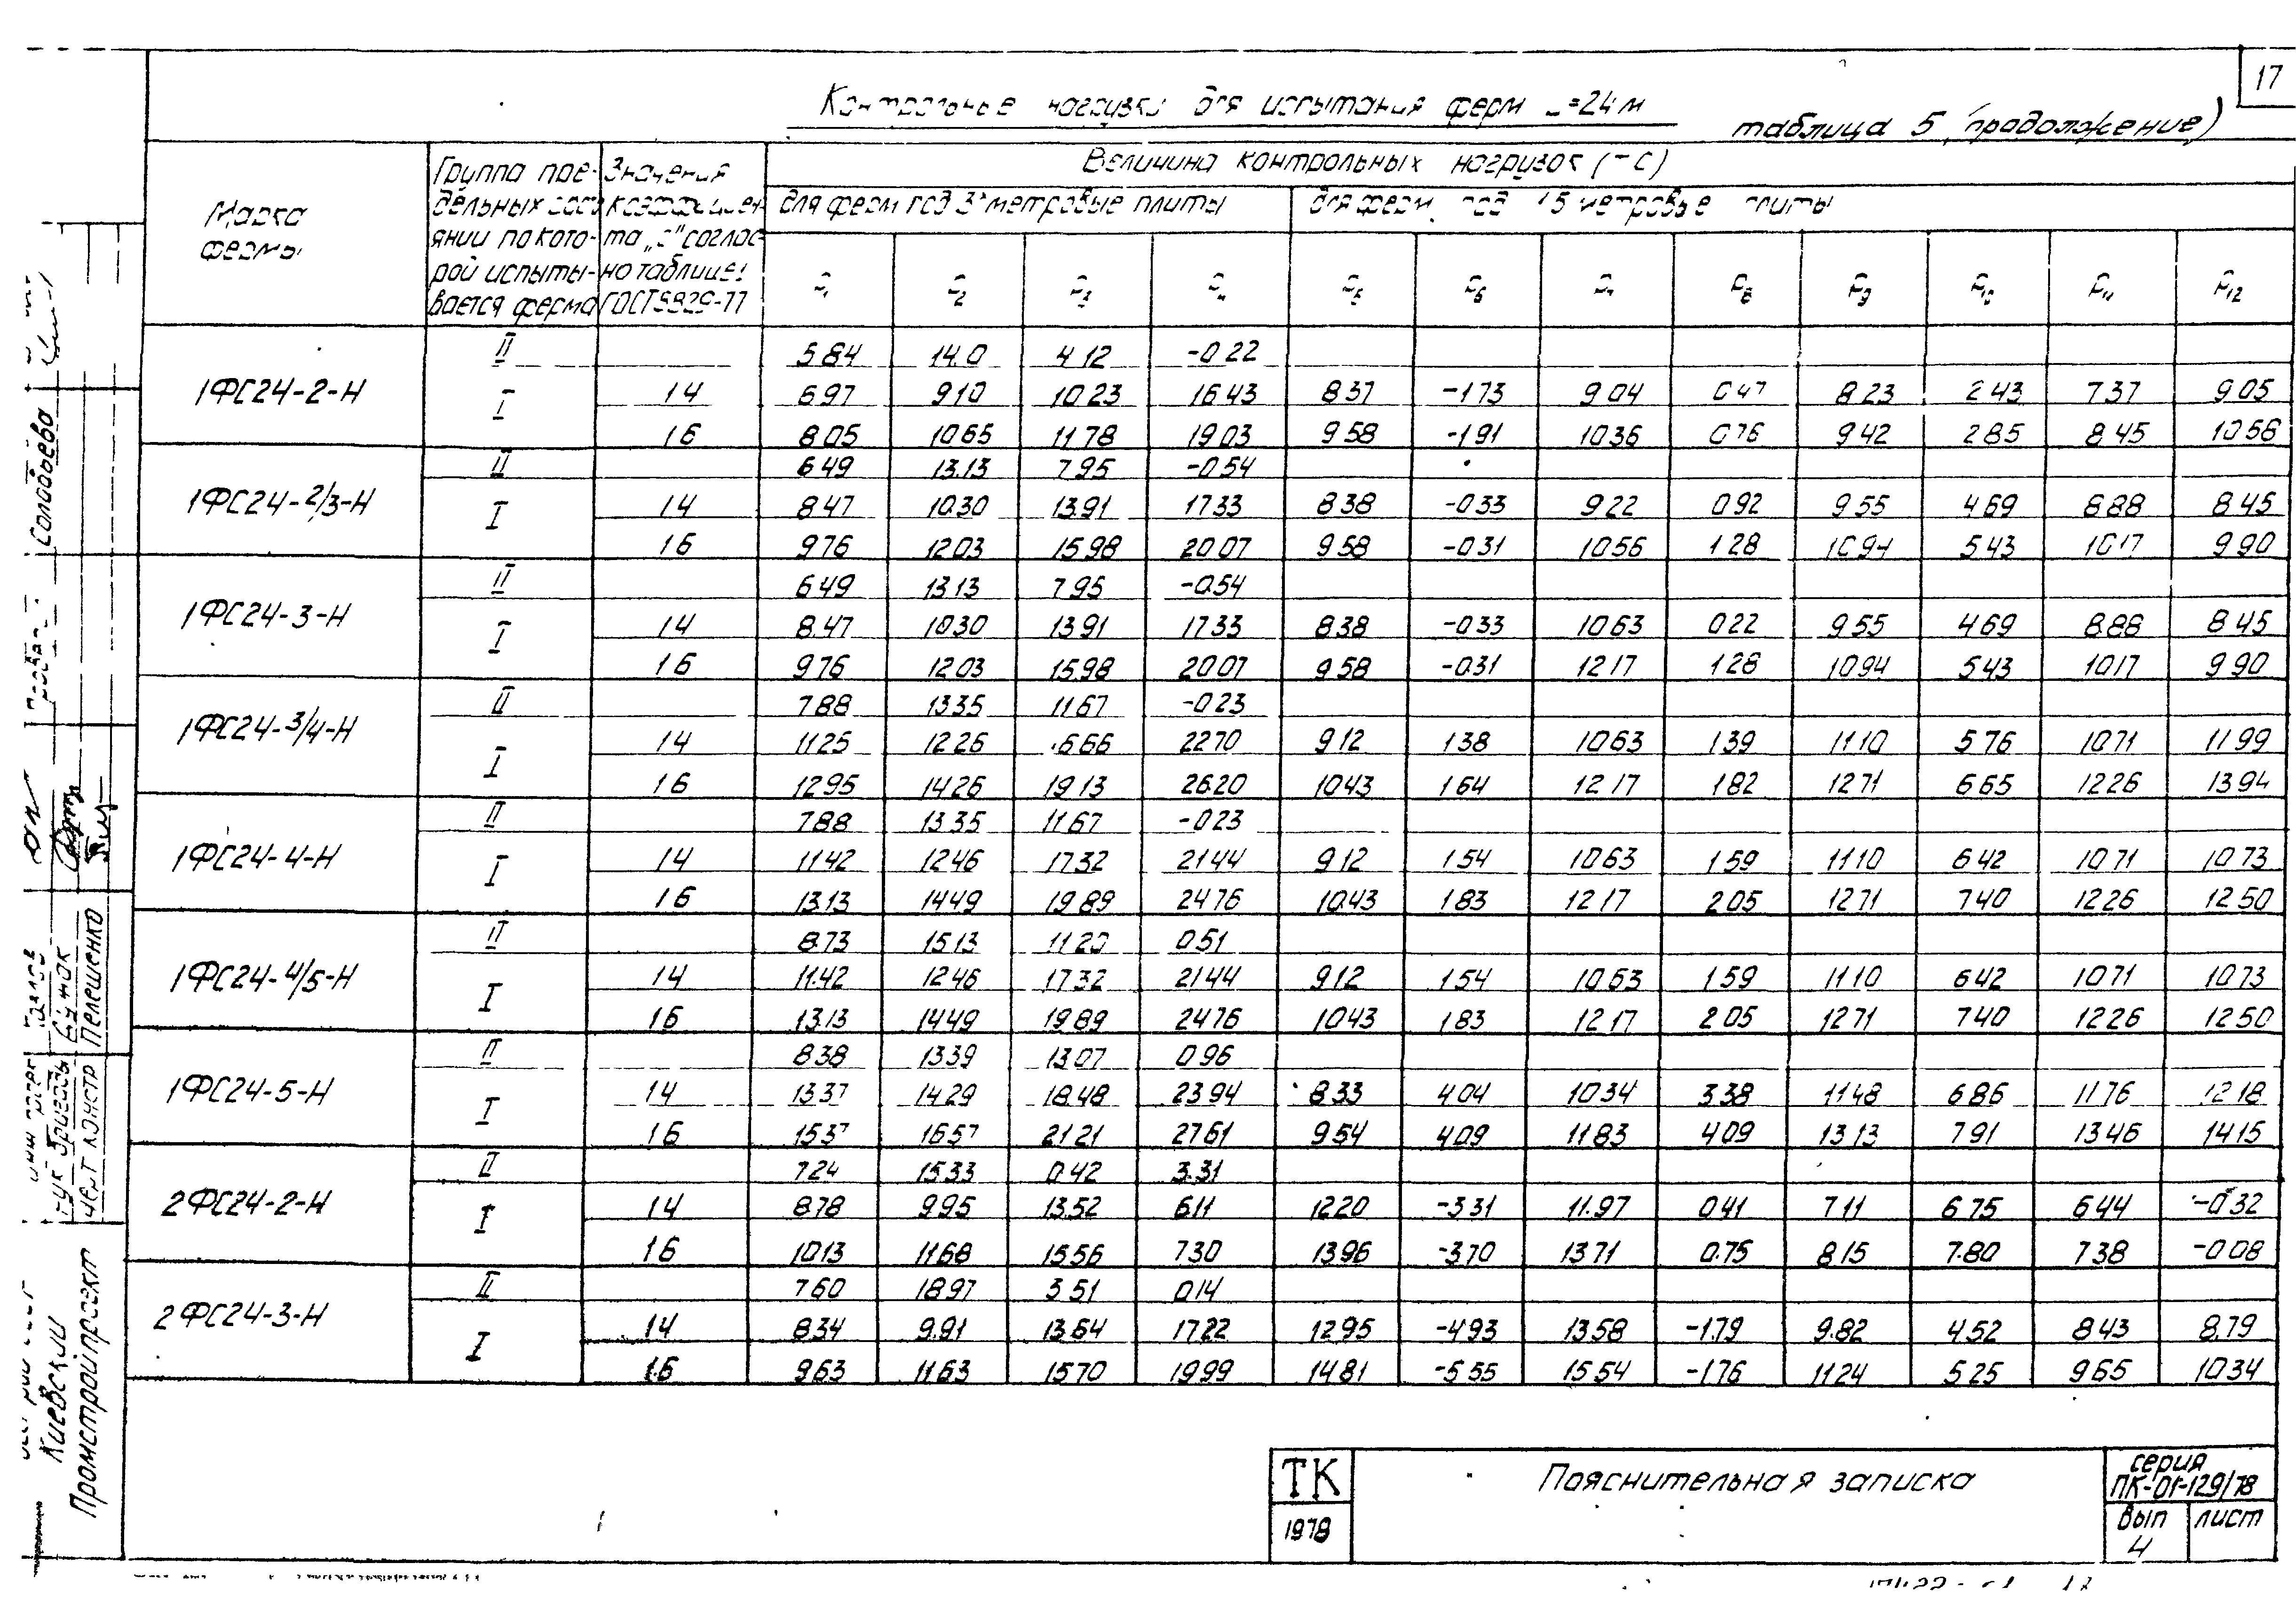 17
Контрольные нагрузки для испытания ферм L=24м
таблица 5 (продолжение)
Марка фермы
Группа пре-
дельных сост
яний по кото-
рой испыты-
вается ферма
Значения
коэффициен-
та „с" соглас-
но таблице 1
ГОСТ 8829-77
Величина контрольных нагрузок (тс)
для ферм под 3х метровые плиты
для ферм под 1,5 метровые плиты
P1 P2 P3 P4 P5 P6 P7 P8 P9 P10 P11 P12
1ФС24-2-Н
II 5.84 14.0 4.12 -0.22
I 1.4 6.97 9.10 10.23 16.43 8.37 -1.73 9.04 0.47 8.23 2.43 7.37 9.05
1.6 8.05 10.65 11.78 19.03 9.58 -1.91 10.36 0.76 9.42 2.85 8.45 10.56
1ФС24-2/3-Н
II 6.49 13.13 7.95 -0.54
I 1.4 8.47 10.30 13.91 17.33 8.38 -0.33 9.22 0.92 9.55 4.69 8.88 8.45
1.6 9.76 12.03 15.98 20.07 9.58 -0.31 10.56 1.28 10.94 5.43 10.17 9.90
1ФС24-3-Н
II 6.49 13.13 7.95 -0.54
I 1.4 8.47 10.30 13.91 17.33 8.38 -0.33 10.63 0.22 9.55 4.69 8.88 8.45
1.6 9.76 12.03 15.98 20.07 9.58 -0.31 12.17 1.28 10.94 5.43 10.17 9.90
1ФС24-3/4-Н
II 7.88 13.35 11.67 -0.23
I 1.4 11.25 12.26 16.66 22.70 9.12 1.38 10.63 1.39 11.10 5.76 10.71 11.99
1.6 12.95 14.26 19.13 26.20 10.43 1.64 12.17 1.82 12.71 6.65 12.26 13.94
1ФС24-4-Н
II 7.88 13.35 11.67 -0.23
I 1.4 11.42 12.46 17.32 21.44 9.12 1.54 10.63 1.59 11.10 6.42 10.71 10.73
1.6 13.13 14.49 19.89 24.76 10.43 1.83 12.17 2.05 12.71 7.40 12.26 12.50
1ФС24-4/5-Н
II 8.73 15.13 11.20 0.51
I 1.4 11.42 12.46 17.32 21.44 9.12 1.54 10.63 1.59 11.10 6.42 10.71 10.73
1.6 13.13 14.49 19.89 24.76 10.43 1.83 12.17 2.05 12.71 7.40 12.26 12.50
1ФС24-5-Н
II 8.38 13.39 13.07 0.96
I 1.4 13.37 14.29 18.48 23.94 8.33 4.04 10.34 3.38 11.48 6.86 11.76 12.18
1.6 15.37 16.57 21.21 27.61 9.54 4.09 11.83 4.09 13.13 7.91 13.46 14.15
2ФС24-2-Н
II 7.24 15.33 0.42 3.31
I 1.4 8.78 9.95 13.52 6.11 12.20 -3.31 11.97 0.41 7.11 6.75 6.44 -0.32
1.6 10.13 11.68 15.56 7.30 13.96 -3.70 13.71 0.75 8.15 7.80 7.38 -0.08
2ФС24-3-Н
II 7.60 18.97 3.51 0.14
I 1.4 8.34 9.91 13.64 17.22 12.95 -4.93 13.58 -1.79 9.82 4.52 8.43 8.79
1.6 9.63 11.63 15.70 19.99 14.81 -5.55 15.54 -1.76 11.24 5.25 9.65 10.34
ТК
1978
Пояснительная записка
серия
ПК-01-129/78
вып
4
лист
Соловьева
Пелешенко
черт констр
Киевский
Промстройпроект